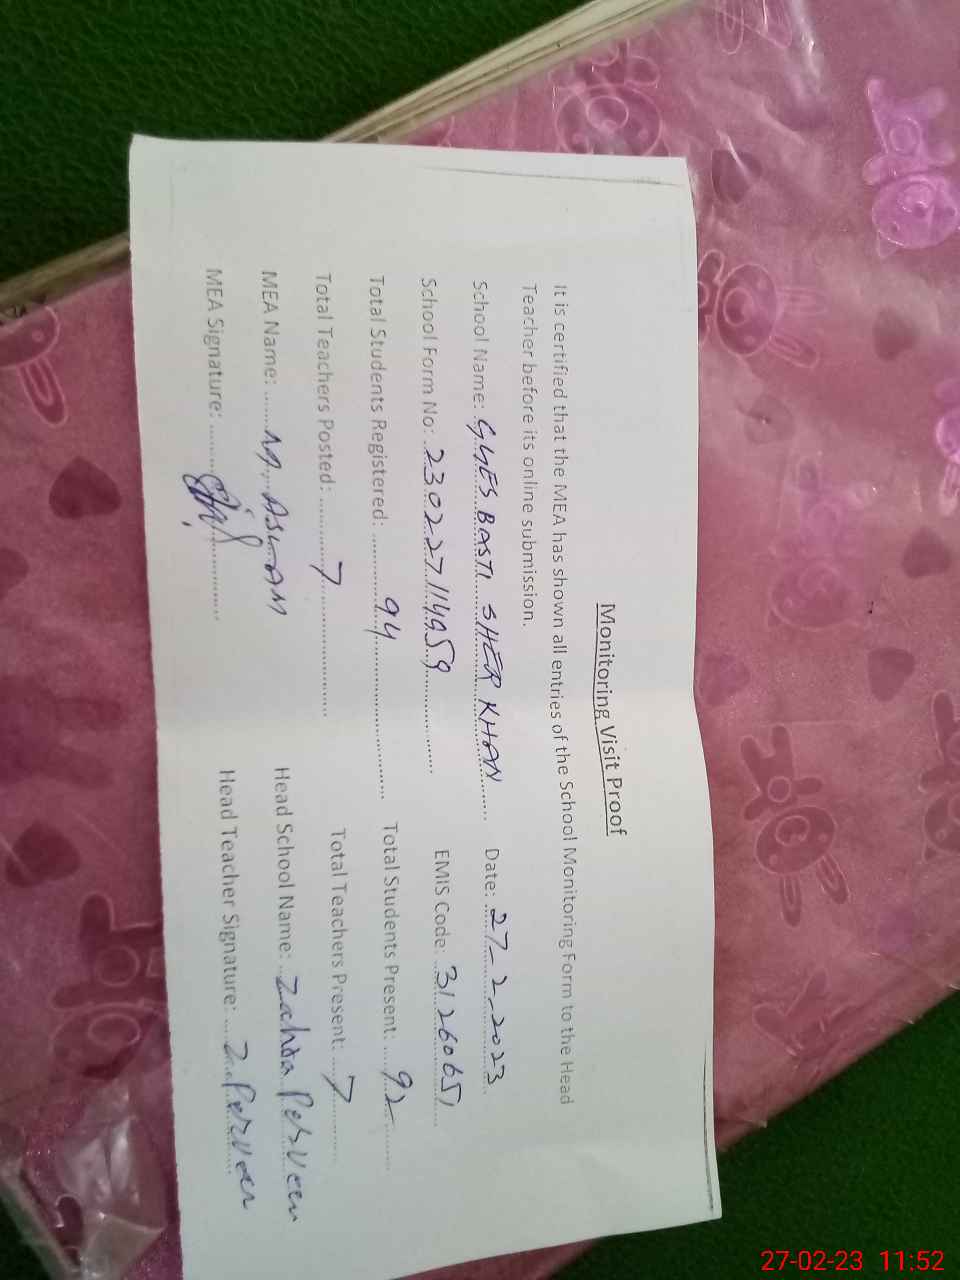 Monitoring Visit Proof
It is certified that the MEA has shown all entries of the School Monitoring Form to the Head
Teacher before its online submission.
School Name: GGES BASTI SHER KHAN Date: 27-2-2023
School Form No: 230227114959 EMIS Code: 31260651
Total Students Registered: 94 Total Students Present: 92
Total Teachers Posted: 7 Total Teachers Present: 7
MEA Name: M. ASLAM Head School Name: Zahra Perveen
MEA Signature: Head Teacher Signature: Z. Perveen
27-02-23 11:52